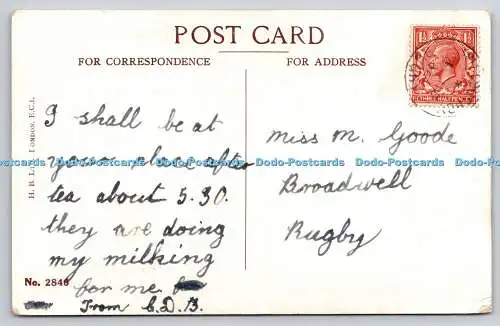 POST CARD
FOR CORRESPONDENCE
FOR ADDRESS
1½ 1½
THREE HALFPENCE
I shall be at
your place after
tea about 5.30.
they are doing
my milking
for me
From C.D.B.
Miss M. Goode
Broadwell
Rugby
No. 2846
LONDON, E.C.1.
Dodo-Postcards Dodo-Postcards Dodo-Postcards Dodo-Postcards Dodo-Postcards